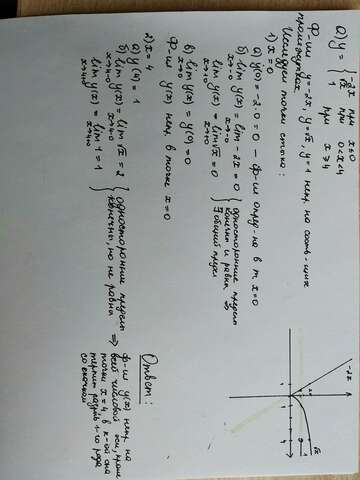 а) y = { -2x при x ≤ 0
√x при 0 < x < 4
1 при x ⩾ 4
Ф-ии y = -2x, y = √x, y = 1 непр. на соотв-щих
промежутках
Исследуем точки стыка:
1) x = 0
а) y(0) = -2·0 = 0 — ф-ия опред-на в т. x=0
б) lim y(x) = lim -2x = 0
x→-0 x→-0
lim y(x) = lim √x = 0
x→+0 x→+0
} односторонние пределы
конечны и равны ⇒
∃ общий предел
в) lim y(x) = y(0) = 0
x→0
Ф-ия y(x) непр. в точке x=0
2) x = 4
а) y(4) = 1
б) lim y(x) = lim √x = 2
x→4-0 x→4-0
lim y(x) = lim 1 = 1
x→4+0 x→4+0
} односторонние пределы
конечны, но не равны ⇒
Ответ:
ф-ия y(x) непр. на
всей числовой оси, кроме
точки x = 4, в к-ой она
терпит разрыв 1-го рода
со скачком
-2x
√x